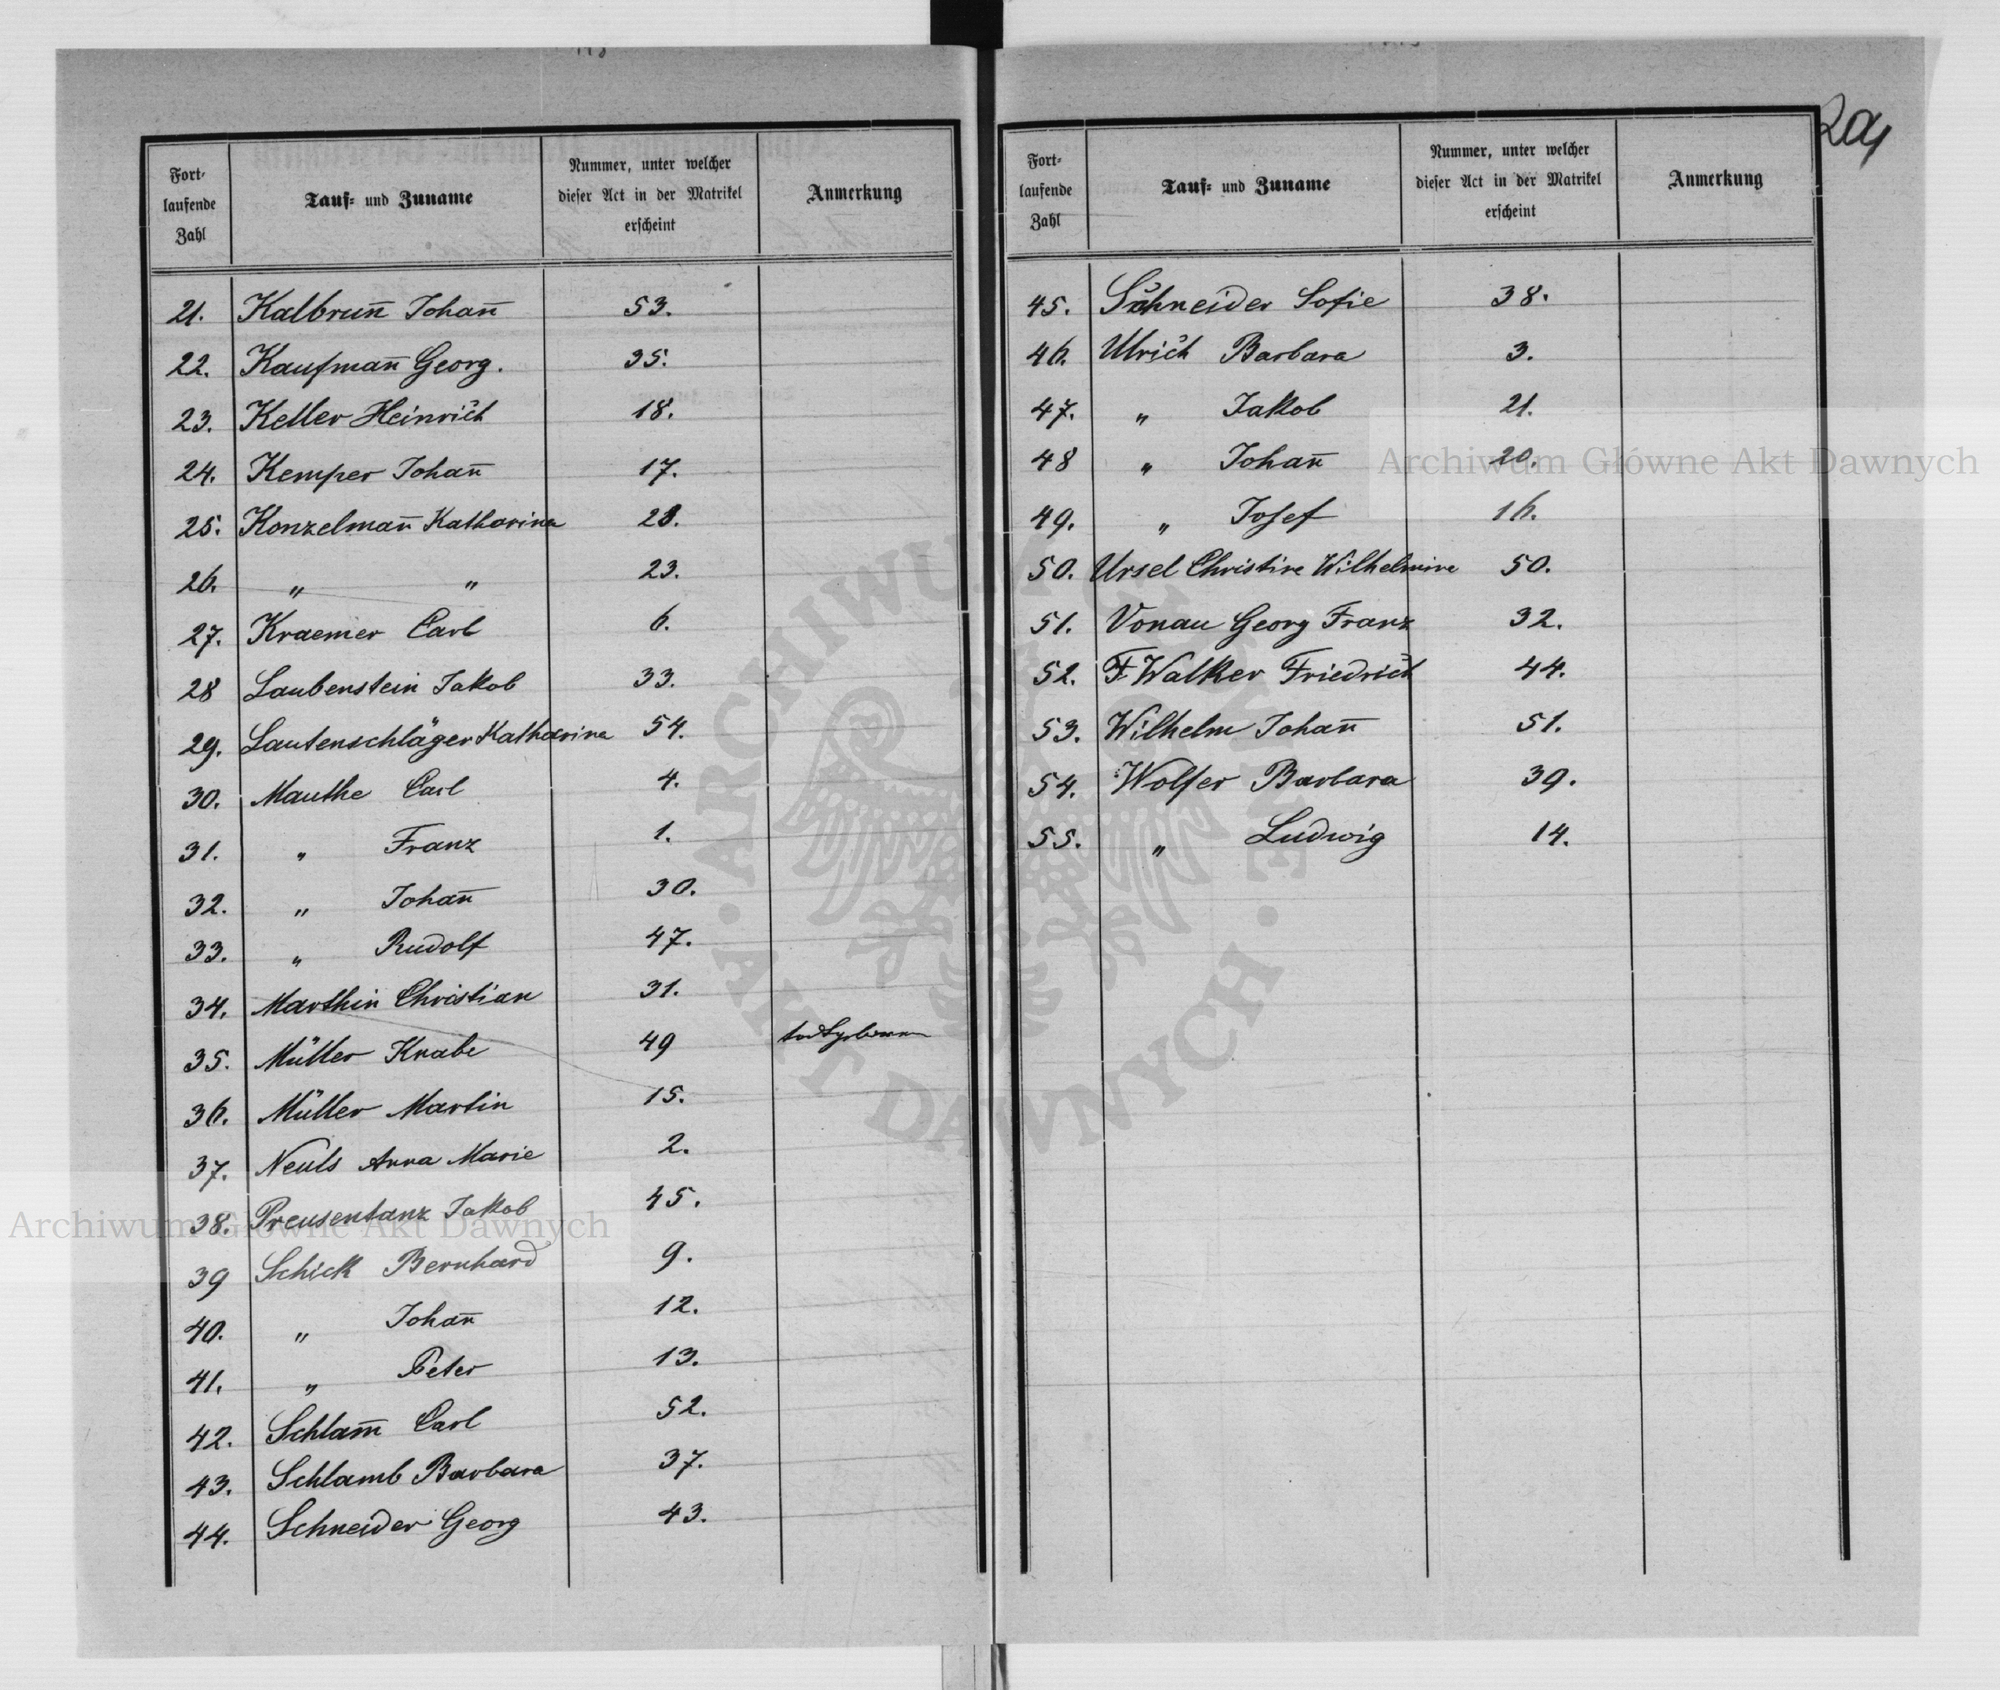 Fort-
laufende
Zahl
Tauf- und Zuname
Nummer, unter welcher
dieser Act in der Matrikel
erscheint
Anmerkung
21. Kalbrun̄ Johan̄ 53.
22. Kaufman̄ Georg. 35.
23. Keller Heinrich 18.
24. Kemper Johan̄ 17.
25. Konzelman̄ Katharina 28.
26. " " 23.
27. Kraemer Carl 6.
28 Laubenstein Jakob 33.
29. Lautenschläger Katharina 54.
30. Mauthe Carl 4.
31. " Franz 1.
32. " Johan̄ 30.
33. " Rudolf 47.
34. Marthin Christian 31.
35. Müller Knabe 49
36. Müller Martin 15.
37. Neuls Anna Marie 2.
38. Preusentanz Jakob 45.
39 Schick Bernhard 9.
40. " Johan̄ 12.
41. " Peter 13.
42. Schlam̄ Carl 52.
43. Schlamb Barbara 37.
44. Schneider Georg 43.
Fort-
laufende
Zahl
Tauf- und Zuname
Nummer, unter welcher
dieser Act in der Matrikel
erscheint
Anmerkung
45. Schneider Sofie 38.
46. Ulrich Barbara 3.
47. " Jakob 21.
48 " Johan̄ 20.
49. " Josef 16.
50. Ursel Christine Wilhelmine 50.
51. Vonau Georg Franz 32.
52. F Walker Friedrich 44.
53. Wilhelm Johan̄ 51.
54. Wolfer Barbara 39.
55. " Ludwig 14.
Archiwum Główne Akt Dawnych
Archiwum Główne Akt Dawnych